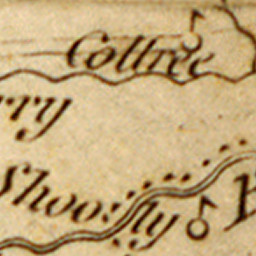 Coltree
rry
Shoofly
B